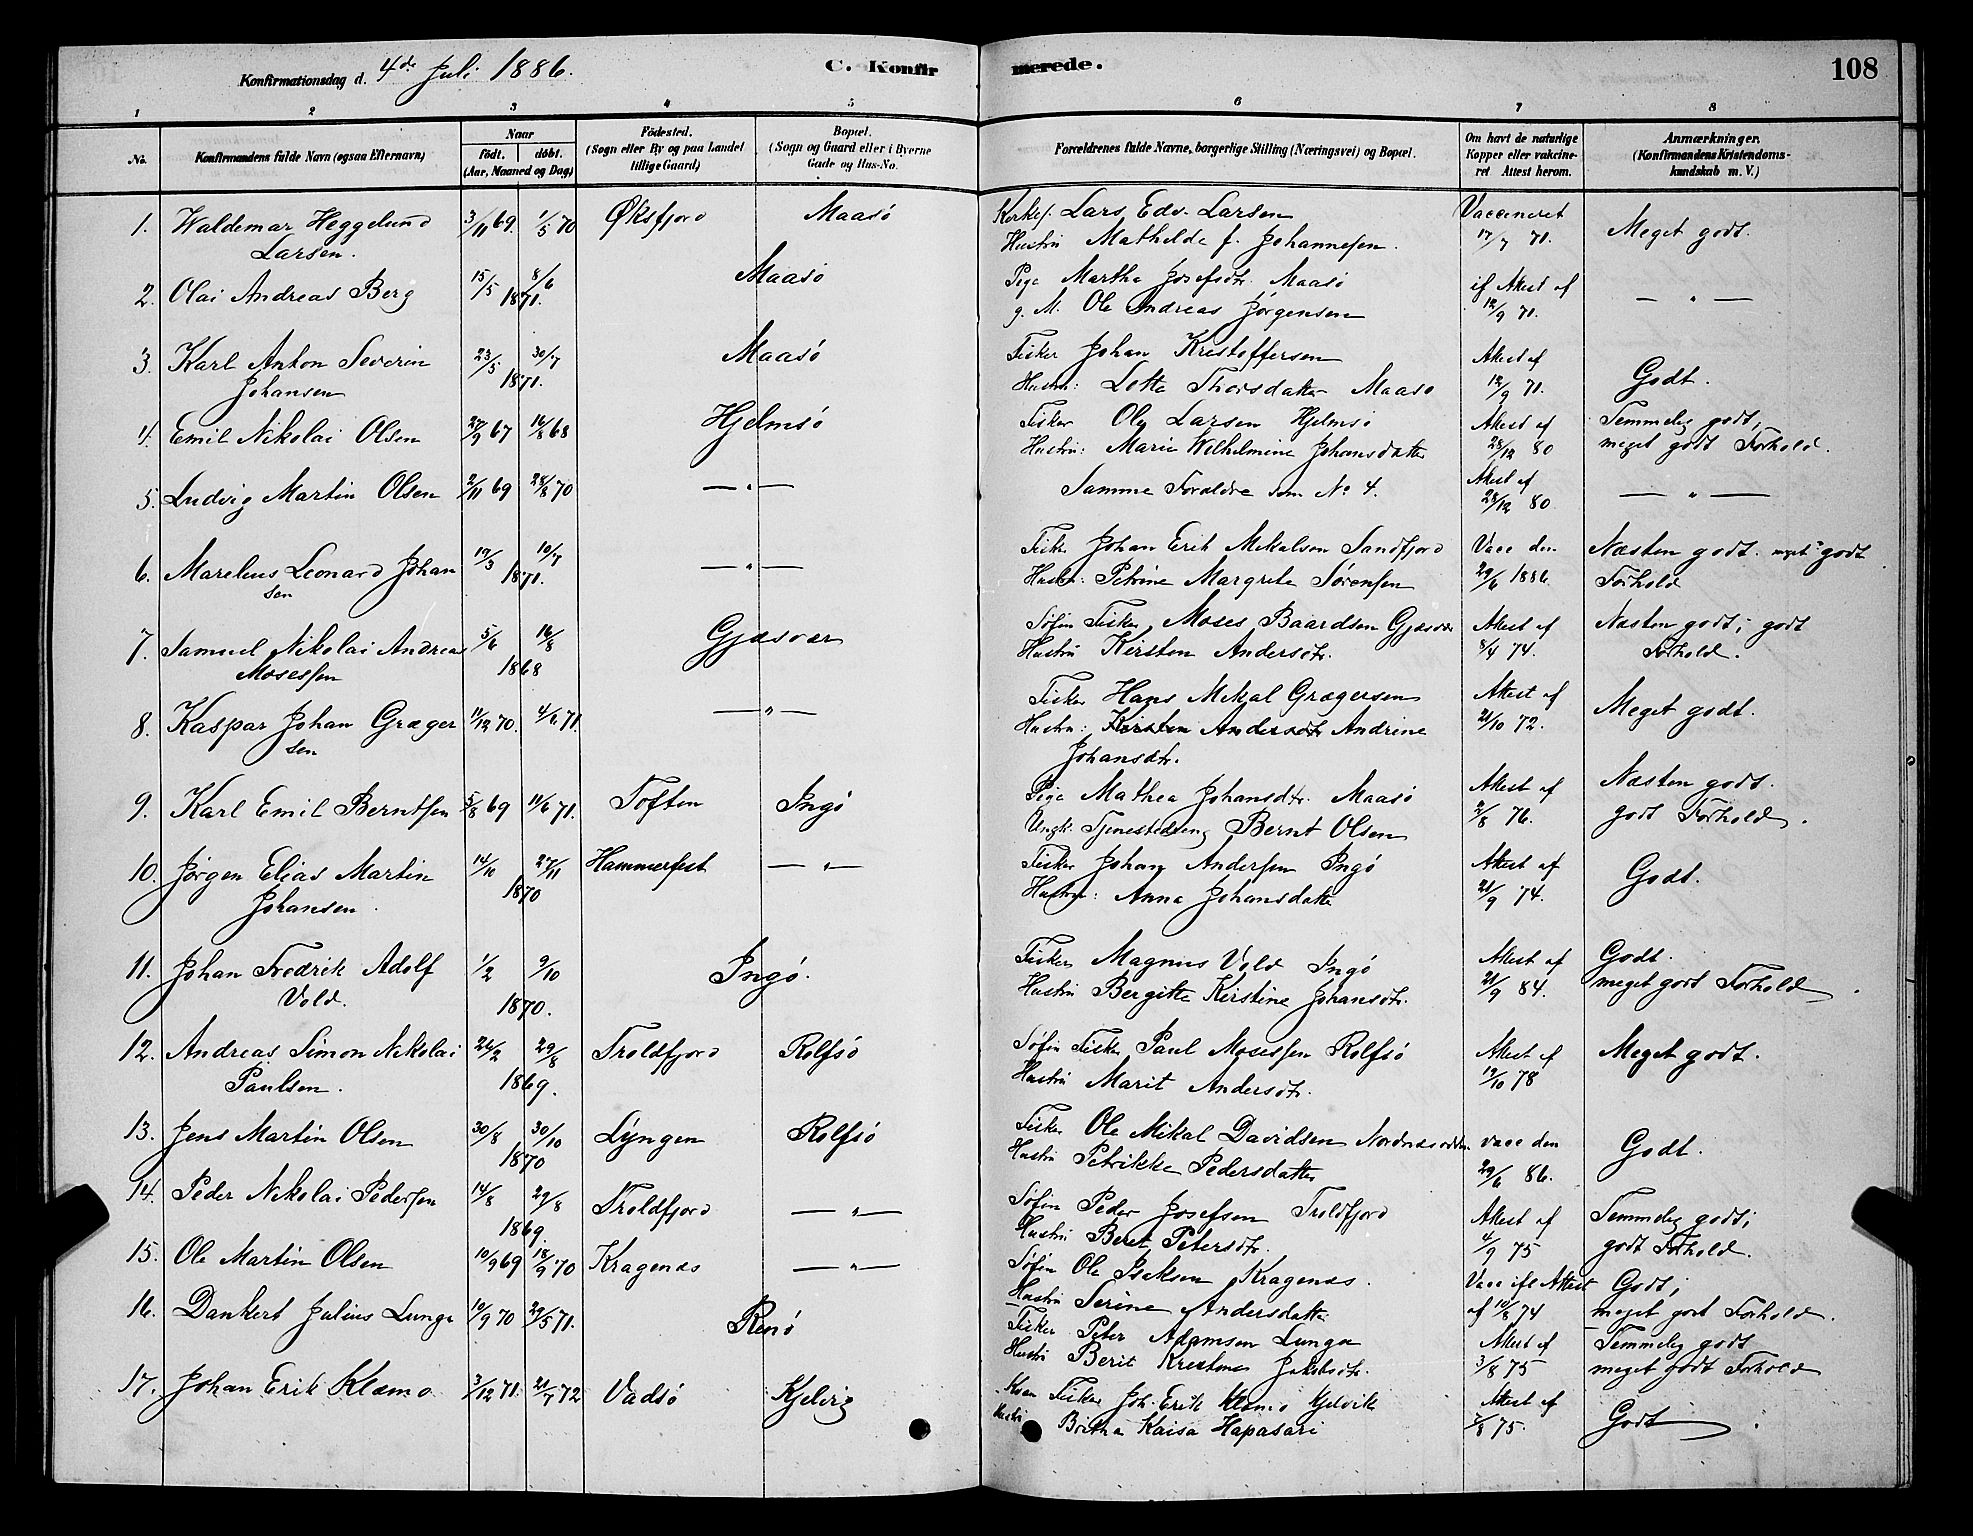 Konfirmationsdag d. 4de Juli 1886.
C. Konfir
merede.
108
1 2 3 4 5 6 7 8
No.
Konfirmandens fulde Navn (ogsaa Efternavn)
Naar
födt. döbt.
(Aar, Maaned og Dag)
Födested.
(Sogn eller By og paa Landet
tillige Gaard)
Bopæl.
(Sogn og Gaard eller i Byerne
Gade og Hus-No.
Forældrenes fulde Navne, borgerlige Stilling (Næringsvei) og Bopæl.
Om havt de naturlige
Kopper eller vakcine-
ret Attest herom.
Anmærkninger.
(Konfirmandens Kristendoms-
kundskab m. V.)
1. Waldemar Heggelund 3/11 69. 1/5 70 Øksfjord Maasö Lars Edv. Larsen Vaccineret
Larsen. Hustru Mathilde f. Johannesen. 17/7 71. Meget godt.
2. Olai Andreas Berg 15/5 8/6 1871. Maasö Pige Martha Josefsdtr. Maasö if Attest af
g. M. Ole Andreas Jörgensen 12/9 71. — " —
3. Karl Anton Severin 23/5 30/7 1871. Maasö Fisker Johan Kristoffersen Attest af
Johansen Hustru: Lotte Thorsdatter Maasö 12/9 71. Godt.
4. Emil Nikolai Olsen 27/9 67 16/8 68 Hjelmsö Fisker Ole Larsen Hjelmsö Attest af Temmelig godt,
Hustru: Marie Wilhelmine Johansdatter 28/12 80 meget godt Forhold.
5. Ludvig Martin Olsen 2/11 69 28/8 70 — " — Samme Forældre som No 4. Attest af
28/12 80. — " —
6. Marelius Leonard Johan 17/3 10/7 1871. — " — Fisker Johan Erik Mikalsen Sandfjord Vacc den Næsten godt. meget godt
sen Hustru: Petrine Margrete Sörensen 29/6 1886. Forhold
7. Samuel Nikolai Andreas 5/6 16/8 1868 Gjæsvær Söfin Fisker Moses Baardsen Gjæsvær Attest af Næsten godt; godt
Mosessen Hustru Kirsten Andersdtr. 8/4 74. Forhold.
8. Kaspar Johan Græger 11/12 70. 4/6 71. — " — Fisker Hans Mikal Grægersen Attest af
sen Hustru: Kirsten Andersdtr Andrine 21/10 72. Meget godt.
Johansdtr.
9. Karl Emil Berntsen 5/8 69 11/6 71. Toften Ingö Pige Mathea Johansdtr. Maasö Attest af Næsten godt.
Ungk. Tjenestedreng Bernt Olsen 2/8 76. godt Forhold.
10. Jörgen Elias Martin 14/10 27/11 1870 Hammerfest — " — Fisker Johan Andersen Ingö Attest af
Johansen. Hustru: Anna Johansdatter 21/9 74. Godt.
11. Johan Fredrik Adolf 1/2 9/10 1870. Ingö. Fisker Magnus Vold Ingö Attest af Godt.
Vold. Hustru Bergitte Kirstine Johansdtr. 21/9 84. meget godt Forhold.
12. Andreas Simon Nikolai 26/2 29/8 1869. Troldfjord Rolfsö Söfin Fisker Paul Mosessen Rolfsö Attest af Meget godt.
Paulsen. Hustru Marit Andersdtr. 19/10 78
13. Jens Martin Olsen 30/8 30/10 1870 Lyngen Rolfsö Fisker Ole Mikal Davidsen Nordnesodden vacc den
Hustru Petrikke Pedersdatter 29/6 86. Godt.
14. Peder Nikolai Pedersen 14/8 29/8 1869. Troldfjord — " — Söfin Peder Josefsen Troldfjord Attest af Temmelig godt;
Hustru Beret Petersdtr. 4/9 75 godt Forhold.
15. Ole Martin Olsen 10/9 69 18/9 70 Kragenæs — " — Söfin Ole Isaksen Kragenæs. Vacc ifl Attest Godt;
Hustru Serine Andersdatter af 10/8 74 meget godt Forhold.
16. Dankert Julius Lunge 19/9 70 29/5 71. Renö Fisker Peter Adamsen Lunge Attest af Temmelig godt
Hustru Berit Jakobsdtr. 3/8 75 meget godt Forhold
17. Johan Erik Klæmo 3/12 71. 21/7 72 Vadsö Kjelvig Kvæn Fisker Joh. Erik Klæmo Kjelvik Attest af
Hustru Britha Kaisa Hapasari 75. Godt.